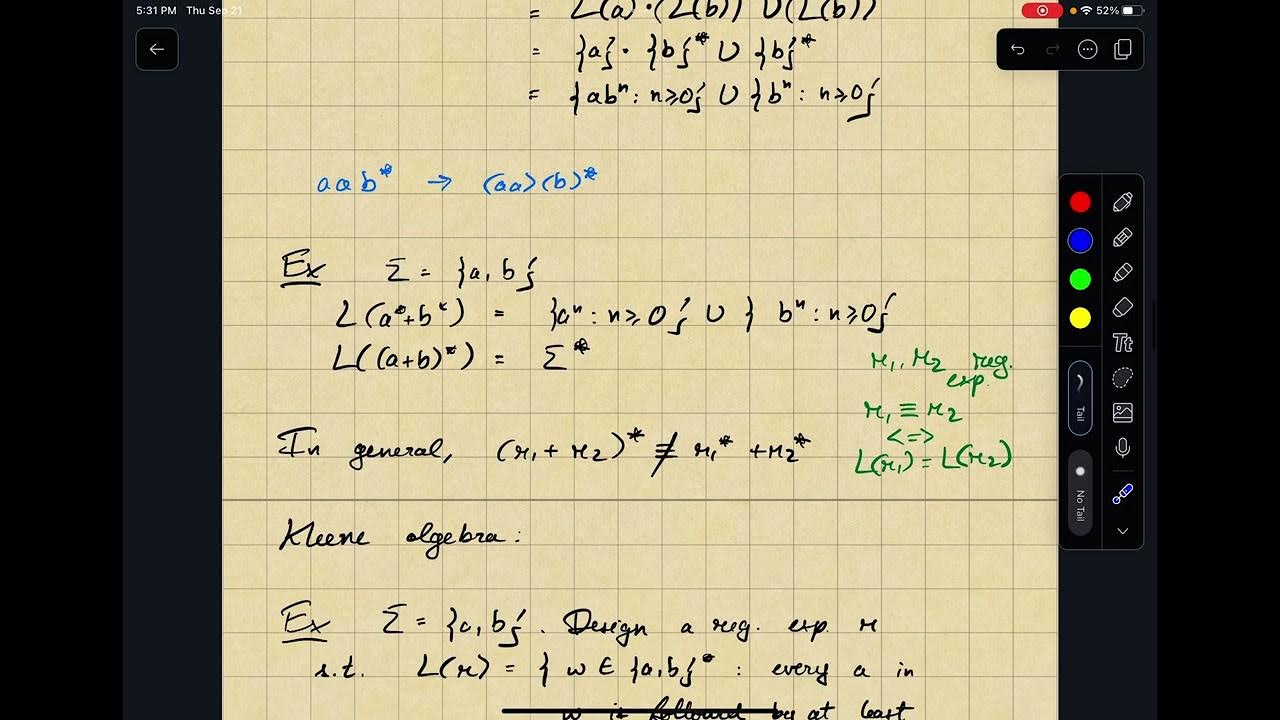 5:31 PM Thu Sep 21 52%
= L(a)·(L(b))* ∪ (L(b))*
= {a}·{b}* ∪ {b}*
= {abⁿ : n≥0} ∪ {bⁿ : n≥0}
aab* → (aa)(b)*
Ex Σ = {a, b}
L(a*+b*) = {aⁿ : n≥0} ∪ } bⁿ : n≥0}
L((a+b)*) = Σ*
r₁, r₂ reg. exp.
r₁ ≡ r₂
<=>
L(r₁) = L(r₂)
In general, (r₁ + r₂)* ≢ r₁* + r₂*
Kleene algebra:
Ex Σ = {a, b}. Design a reg. exp. r
s.t. L(r) = { w ∈ {a,b}* : every a in
w is followed by at least
Tail
No Tail
Tt